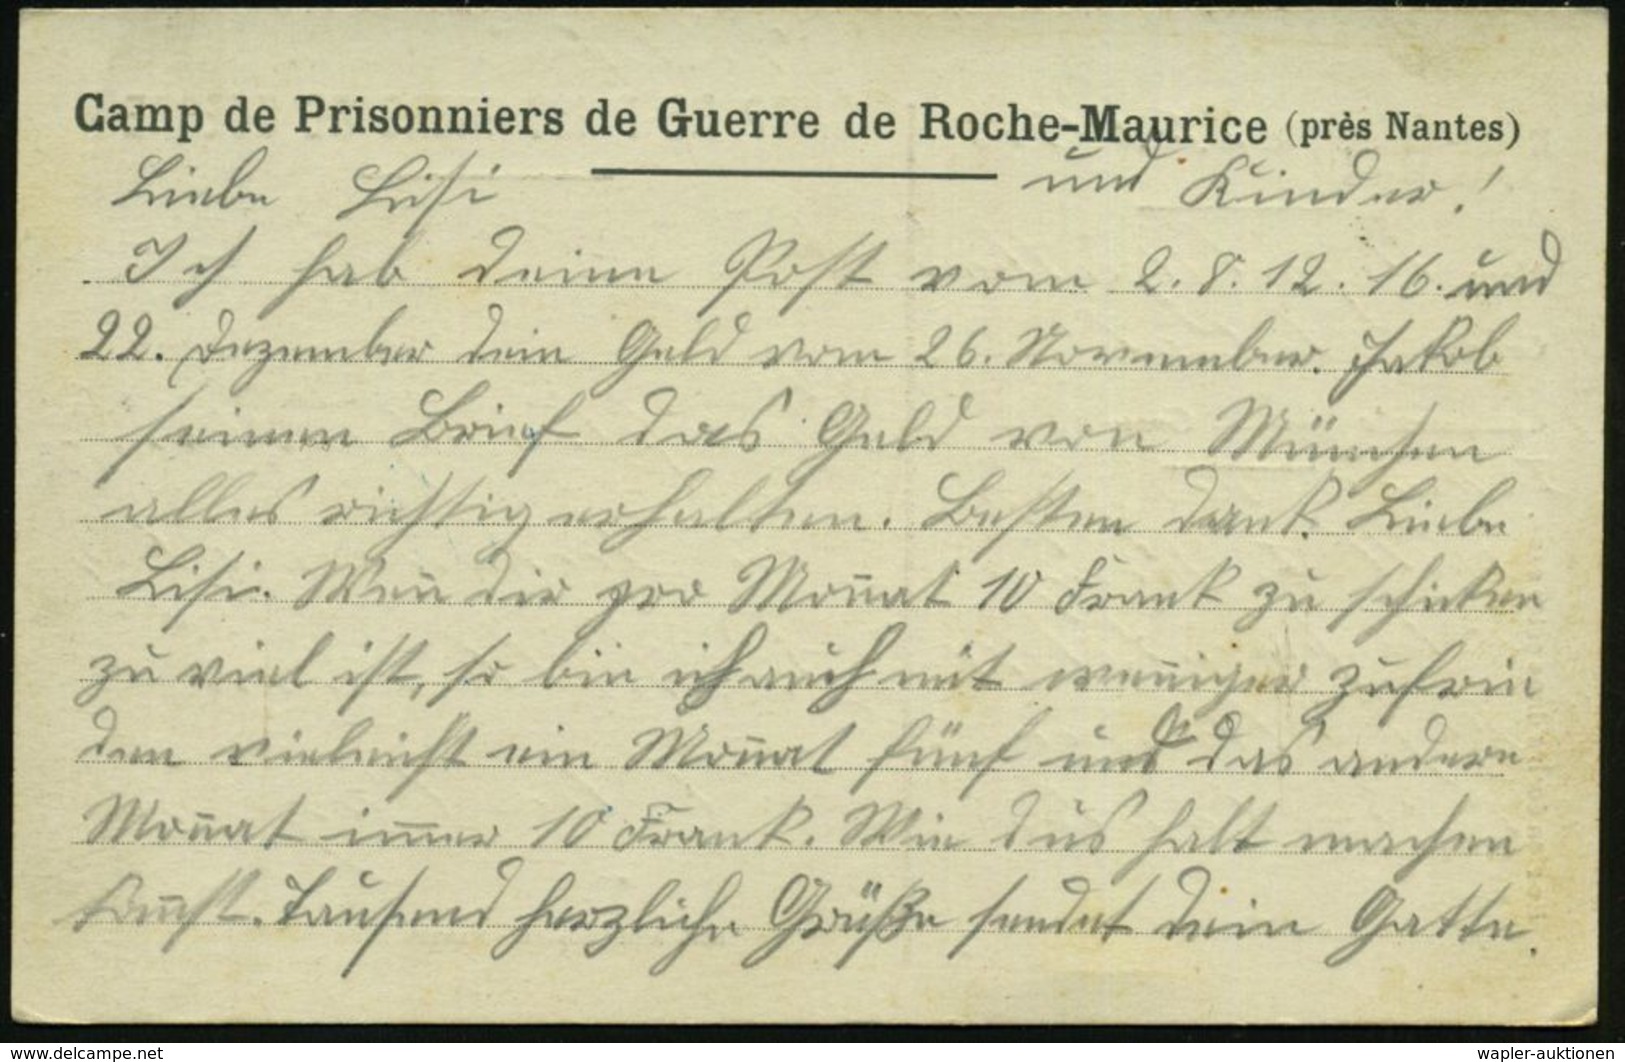 Camp de Prisonniers de Guerre de Roche-Maurice (près Nantes)
Liebe Lisi und Kinder!
Ich hab deine Post vom 2. 8. 12. 16. und
22. Dezember dein Geld vom 26. November. Jakob
seinen Brief das Geld von München
alles richtig erhalten. Besten Dank. Liebe
Lisi. Wen̄ dir pro Mon̄at 10 Frank zu schicken
zu viel ist, so bin ich auch mit wen̄iger zufrie
den vieleicht ein Mon̄at fünf und das andere
Mon̄at im̄er 10 Frank. Wie dus halt machen
kan̄st. Tausend herzliche Grüße sendet dein Gatte.
www.delcampe.net
wapler-auktionen